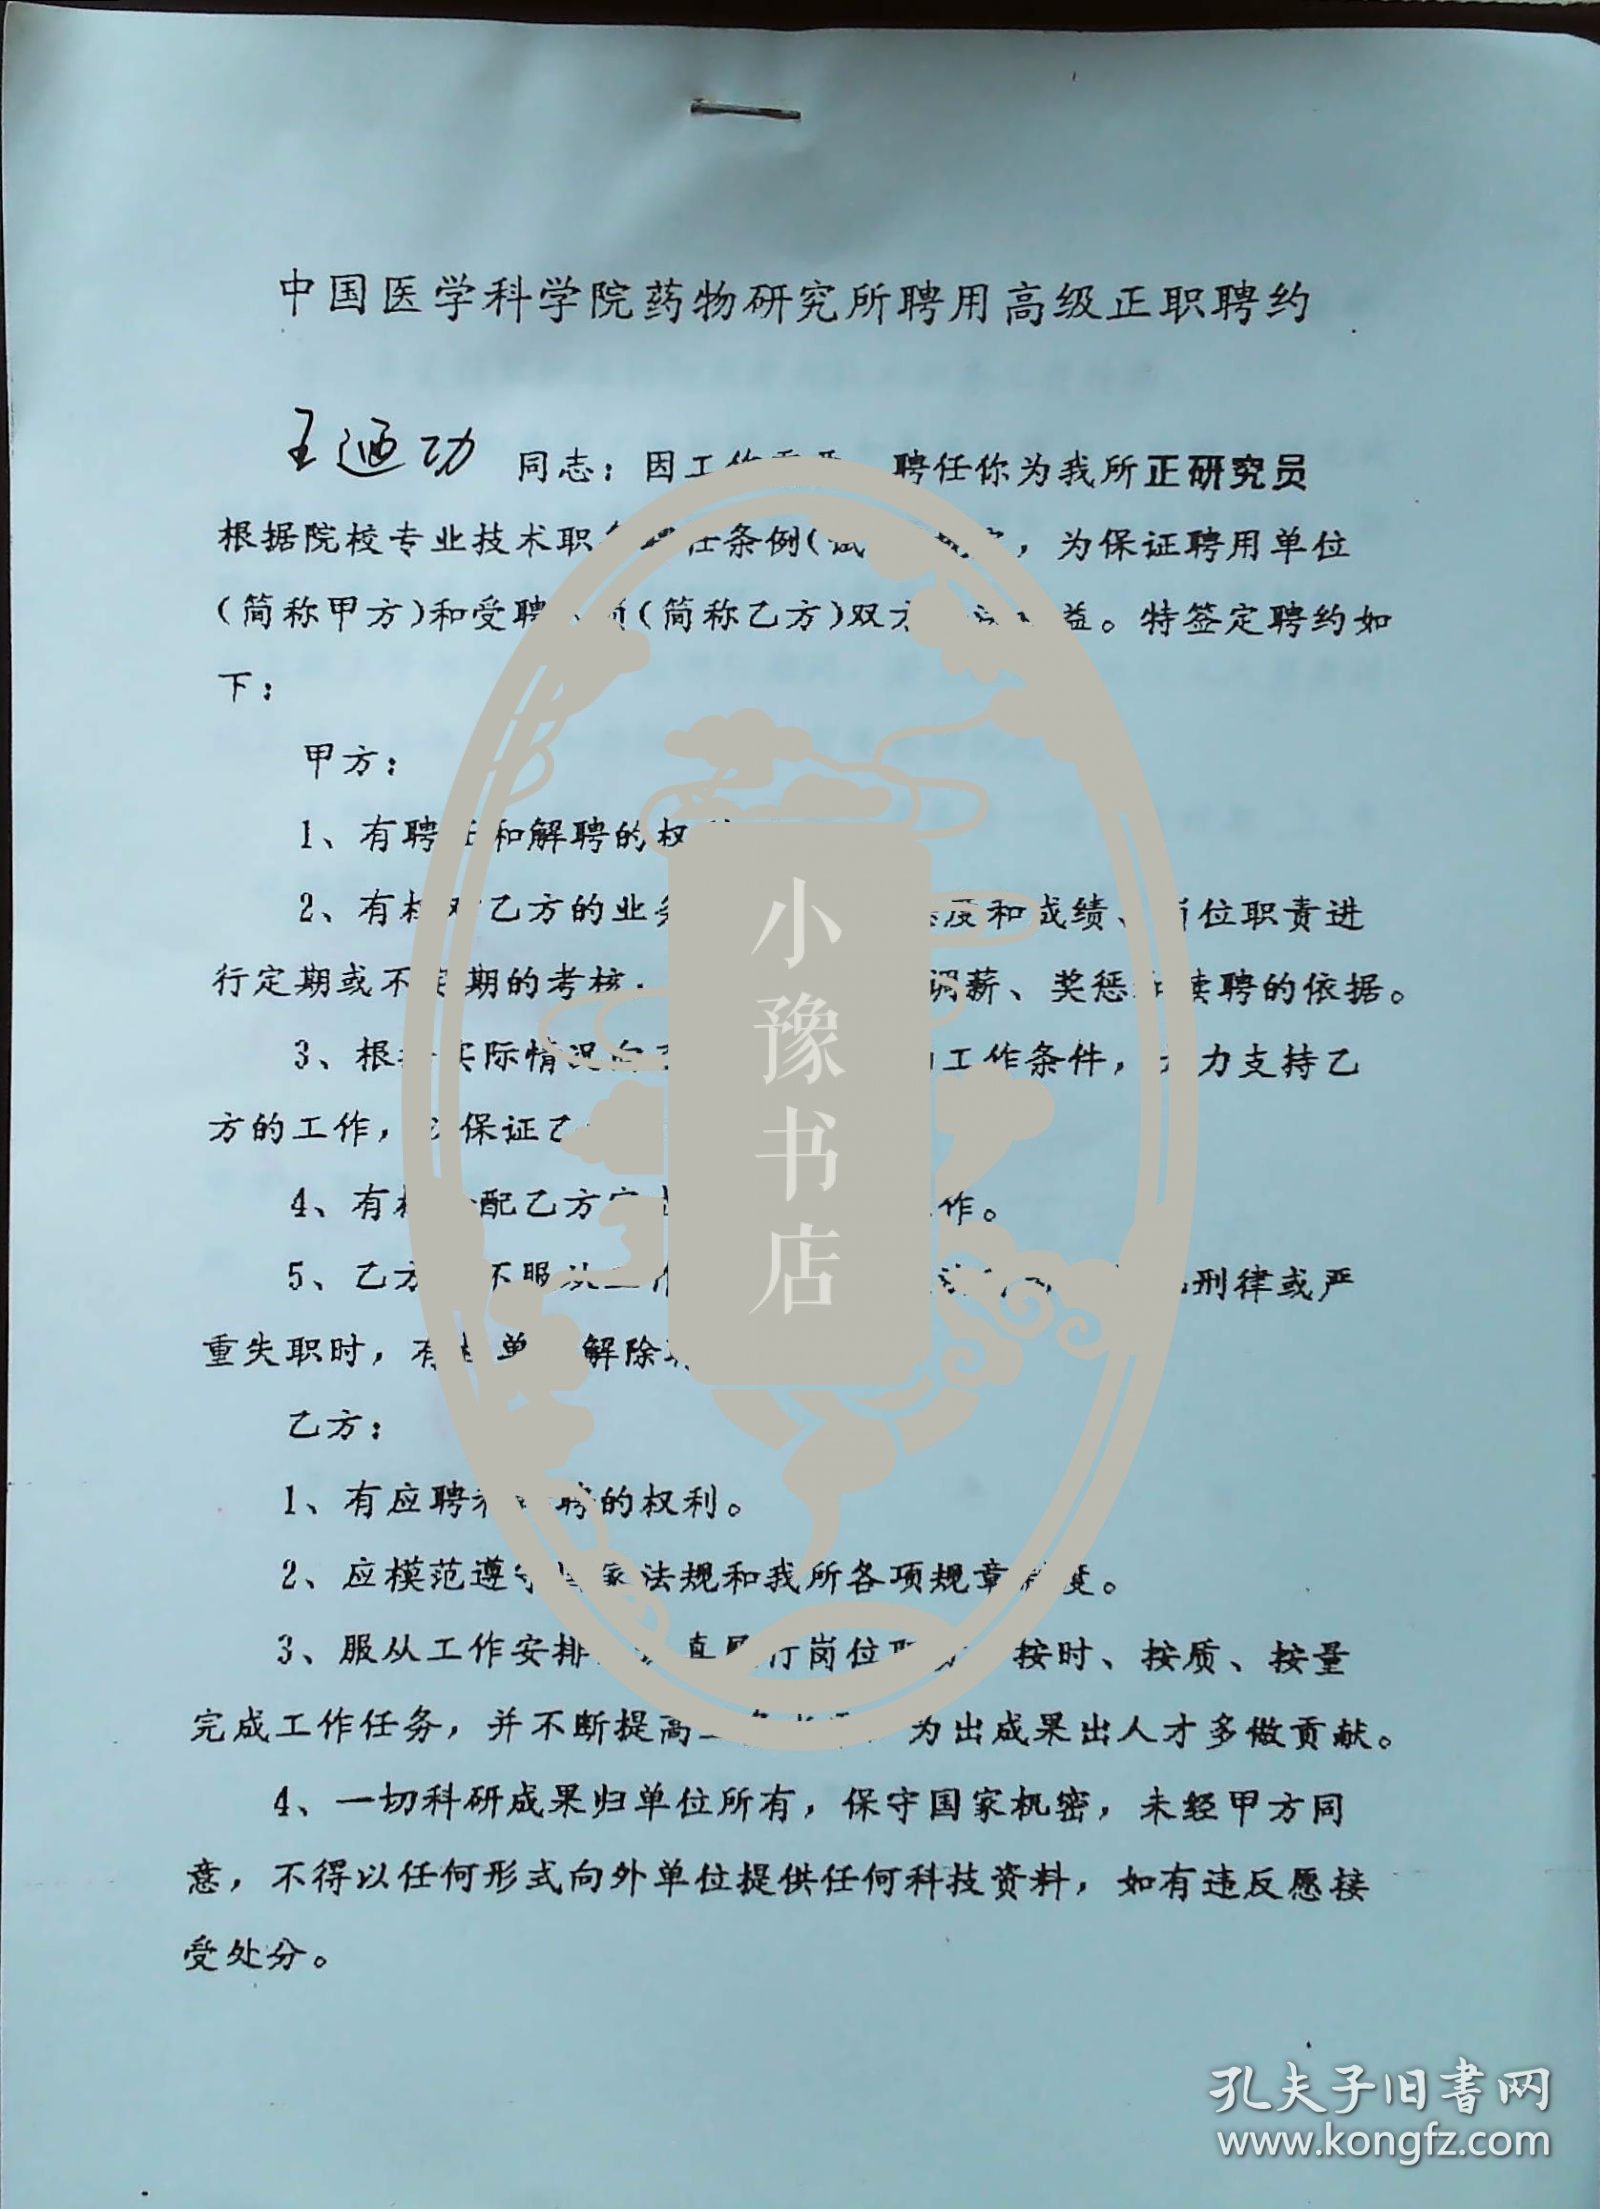 中国医学科学院药物研究所聘用高级正职聘约
王 功 同志：因工作 聘任你为我所正研究员
根据院校专业技术职 任条例(试 ，为保证聘用单位
(简称甲方)和受聘 (简称乙方)双方 益。特签定聘约如
下：
甲方：
1、有聘任和解聘的权
2、有权对乙方的业务 度和成绩、岗位职责进
行定期或不定期的考核， 调薪、奖惩 续聘的依据。
3、根据实际情况向 工作条件， 力支持乙
方的工作， 保证乙
4、有权 配乙方完成 作。
5、乙方 不服从工作 刑律或严
重失职时，有权单 解除
乙方：
1、有应聘和 聘的权利。
2、应模范遵守国家法规和我所各项规章制度。
3、服从工作安排 真履行岗位职 按时、按质、按量
完成工作任务，并不断提高 为出成果出人才多做贡献。
4、一切科研成果归单位所有，保守国家机密，未经甲方同
意，不得以任何形式向外单位提供任何科技资料，如有违反愿接
受处分。
小豫书店
孔夫子旧书网
www.kongfz.com